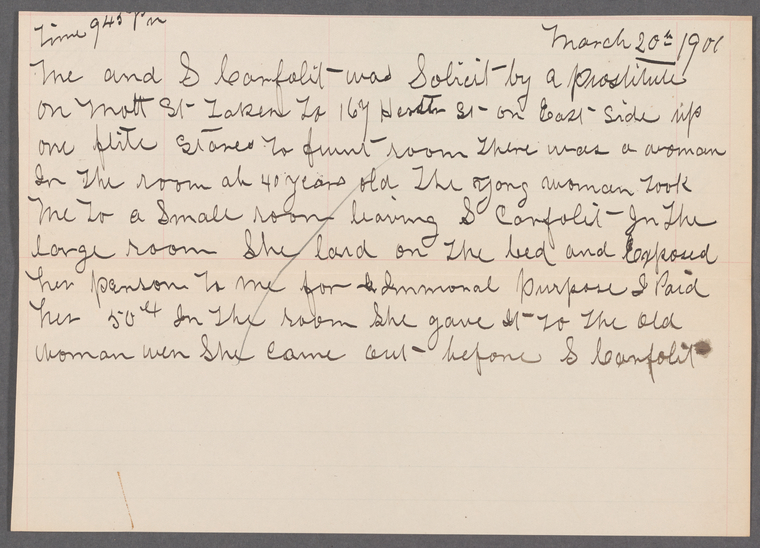 Time 9 45 Pm
March 20th 1901
Me and S Carfolit was Solicit by a prostitute
on Mott St Taken To 167 Hester St on East Side up
one flite Stares To frunt room There was a woman
In The room ab 40 years old The Yong woman Took
Me To a Small room leaving S Carfolit In The
large room She laid on The bed and Exposed
her person To me for Immoral Purpose I Paid
her 50 cts In The room She gave It To The old
woman wen She came out before S Carfolit